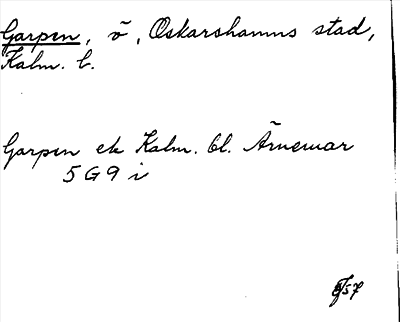 Garpen, ö, Oskarshamns stad,
Kalm. l.
Garpen ek Kalm. bl. Ärnemar
5G9i